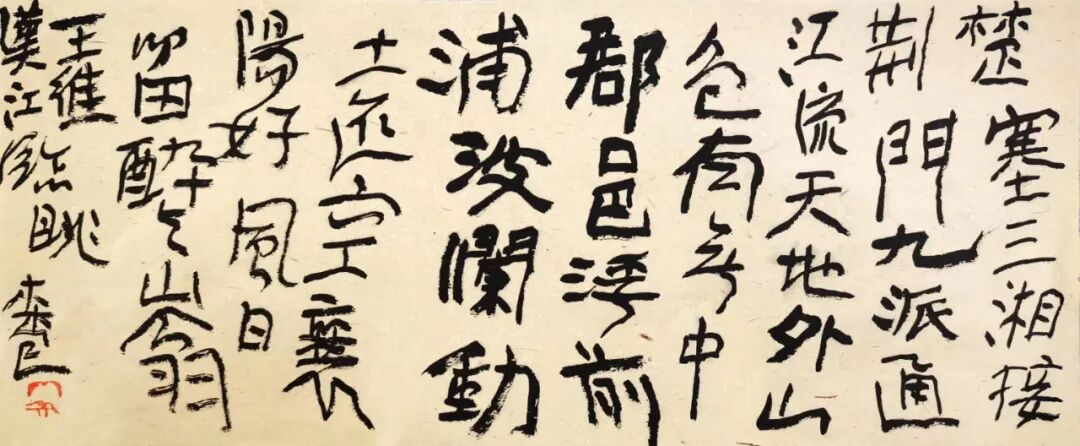 楚塞三湘接
荆門九派通
江流天地外山
色有无中
郡邑浮前
浦波瀾動
遠空襄
陽好風日
留醉与山翁
王維
漢江臨眺